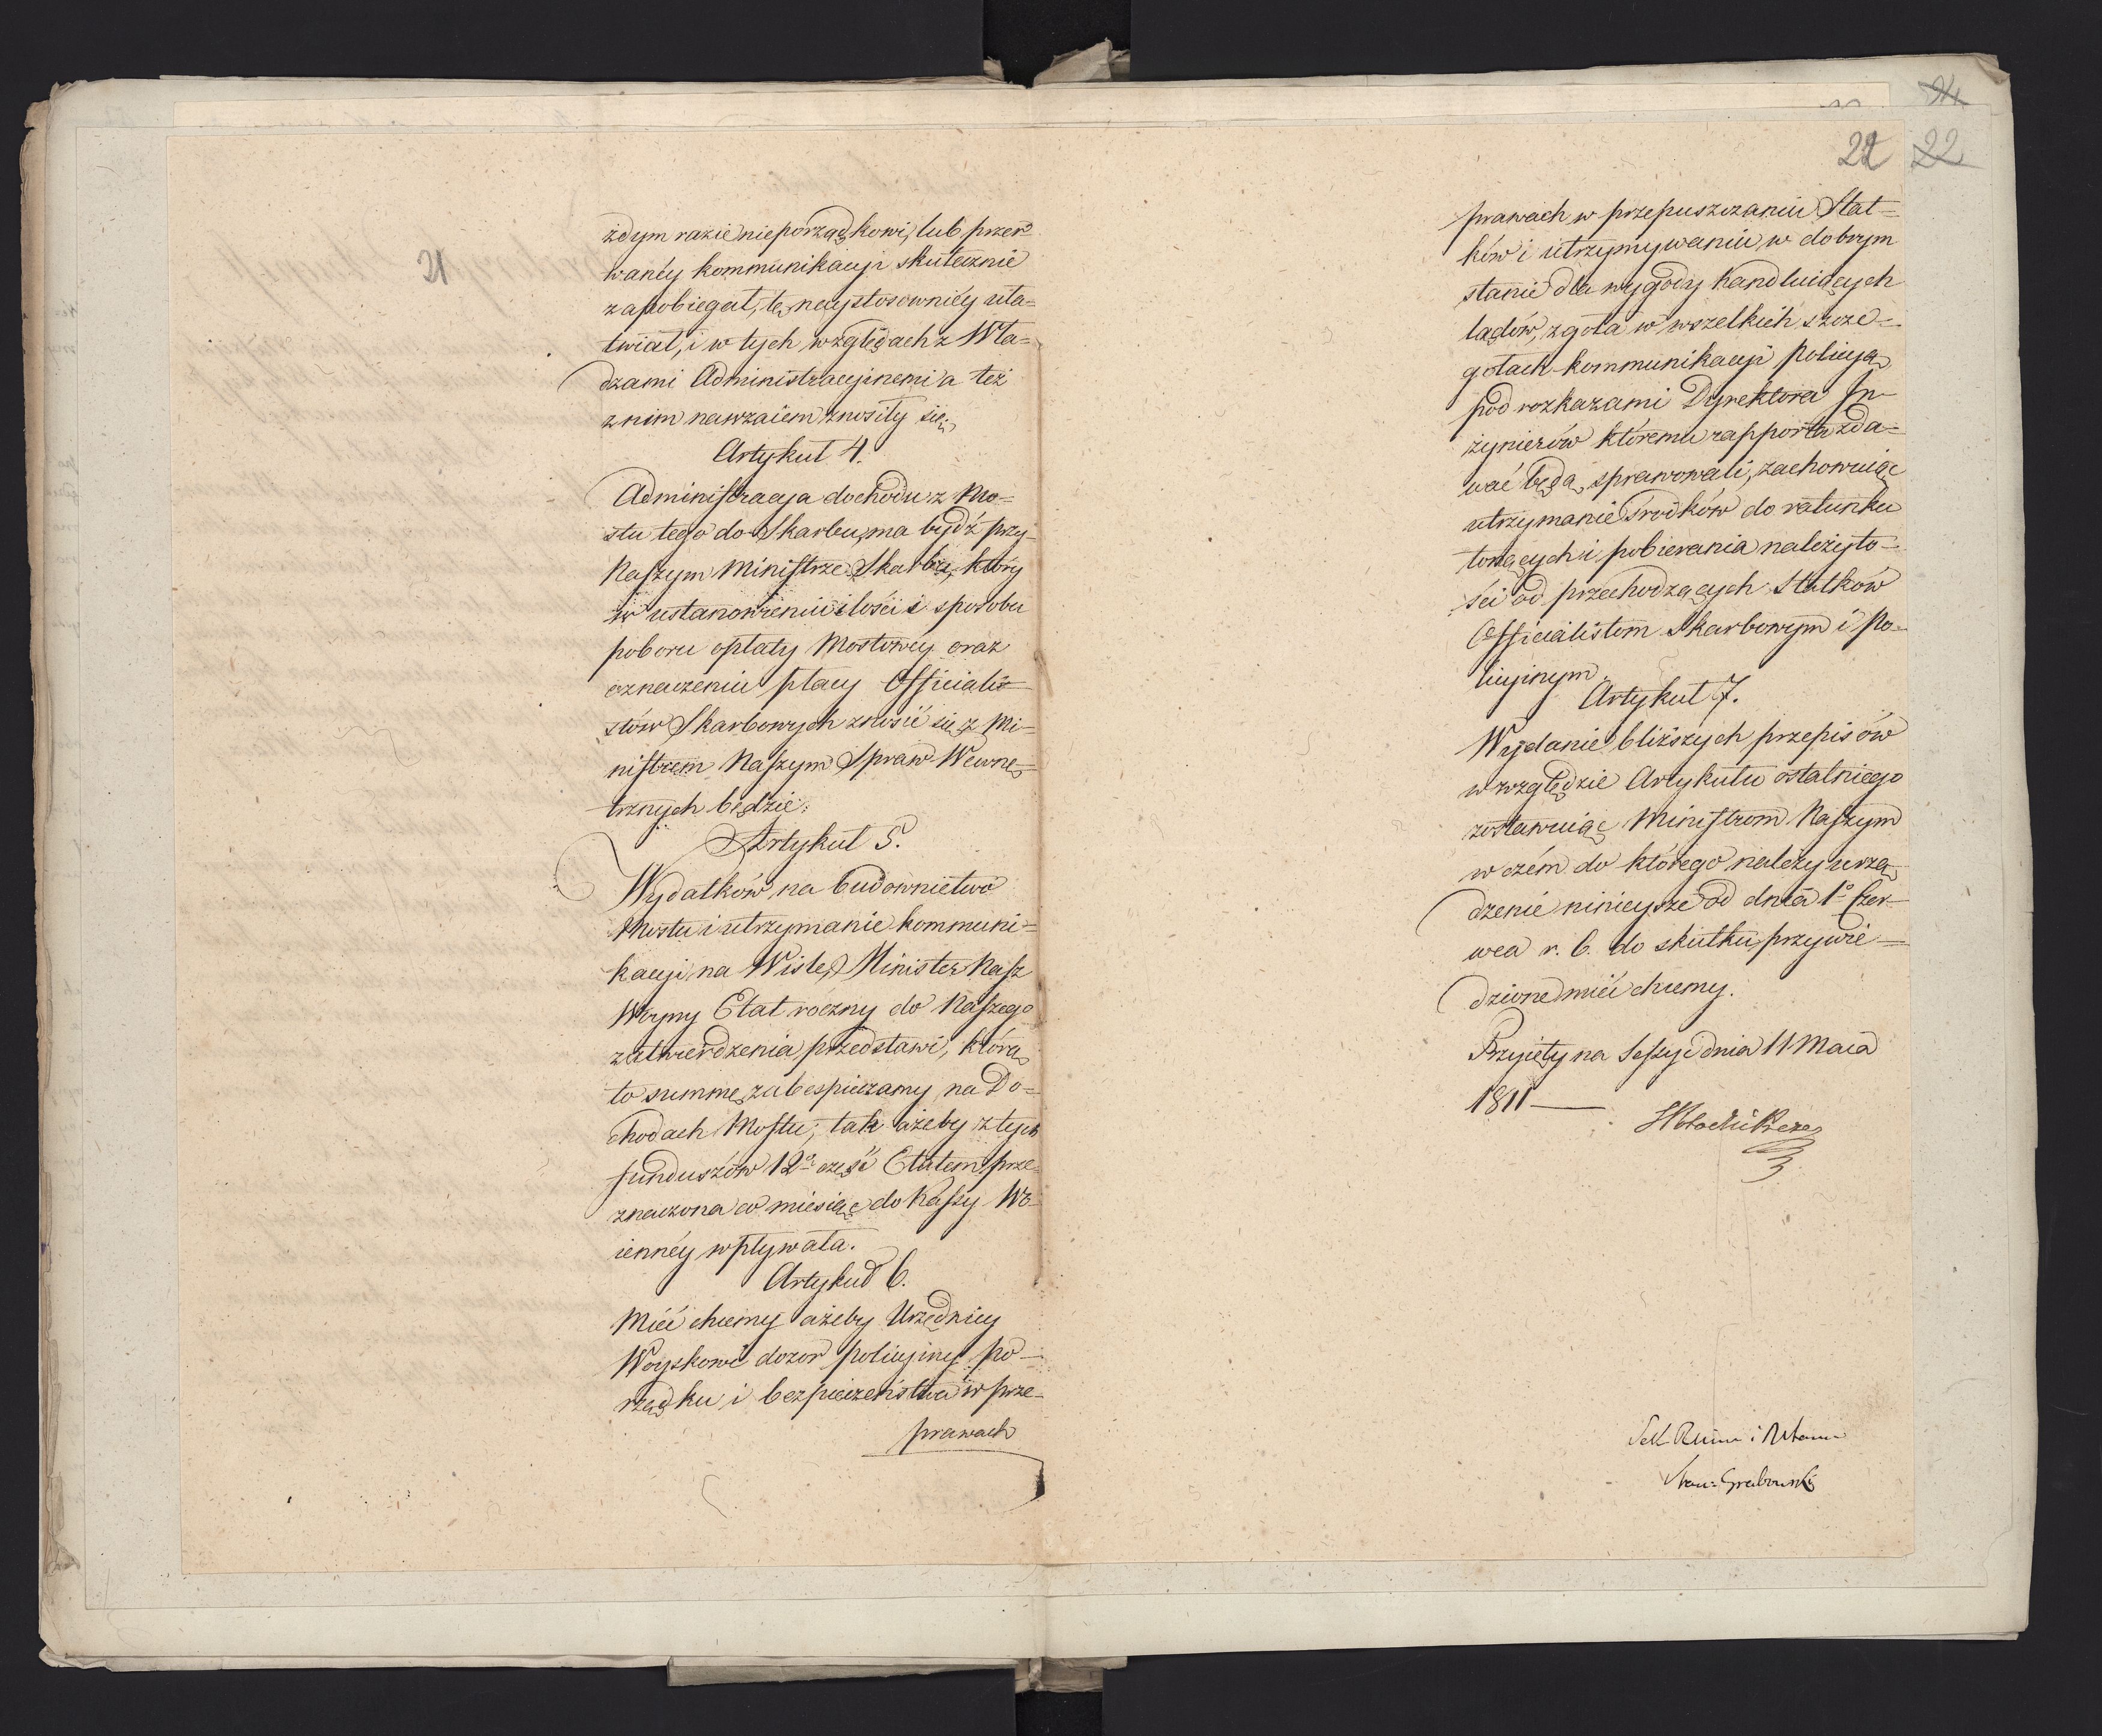 21
żdym razie nieporządkowi, lub przer
wanéy kommunikacyi skutecznie
zapobiegał, tę naystosowniéy uła=
twiał, i w tych względach z Wła=
dzami Administracyinemi a też
z nim nawzaiem znosiły się;
Artykuł 4.
Administracya dochodu z Mo=
stu tego do Skarbu, ma bydź przy
Naszym Ministrze Skarbu, który
w ustanowieniu ilości i sposobu
poboru opłaty Mostowéy oraz
oznaczeniu płacy Officiali=
stów Skarbowych znosić się z Mi=
nistrem Naszym Spraw Wewnę=
trznych będzie.
Artykuł 5.
Wydatków na budownictwo
Mostu i utrzymanie kommuni=
kacyi na Wiśle, Minister Nasz
Woyny Etat roczny do Naszego
zatwierdzenia przedstawi, którą
to summę zabespieczamy na Do=
chodach Mostu, tak ażeby z tych
funduszów 12ª część Etatem prze=
znaczona co miesiąc do Kassy Wo=
ienney wpływała.
Artykuł 6.
Mieć chcemy ażeby Urzędnicy
Woyskowi dozór policyiny po=
rządku i bezpieczeństwa w prze=
prawach
22 22
24
prawach w przepuszczaniu Stat=
ków i utrzymywaniu w dobrym
stanie dla wygody handluiących
lądów, zgoła w wszelkich szcze=
gółach kommunikacyi policyą
pod rozkazami Dyrektora In=
żynierów któremu rapporta zda=
wać będą, sprawowali, zachowuiąc
utrzymanie środków do ratunku
tonących i pobierania należyto=
ści od przechodzących Statków
Officialistom Skarbowym i Po=
licyinym.
Artykuł 7.
Wydanie bliższych przepisów
w względzie Artykułu ostatniego
zostawuiąc Ministrom Naszym
w czém do którego należy urzą=
dzenie ninieysze od dnia 1º Czer=
wca r. b. do skutku przywie=
dzione mieć chcemy.
Przyięty na Sessyi dnia 11 Maia
1811 —
Stan: Grabowski